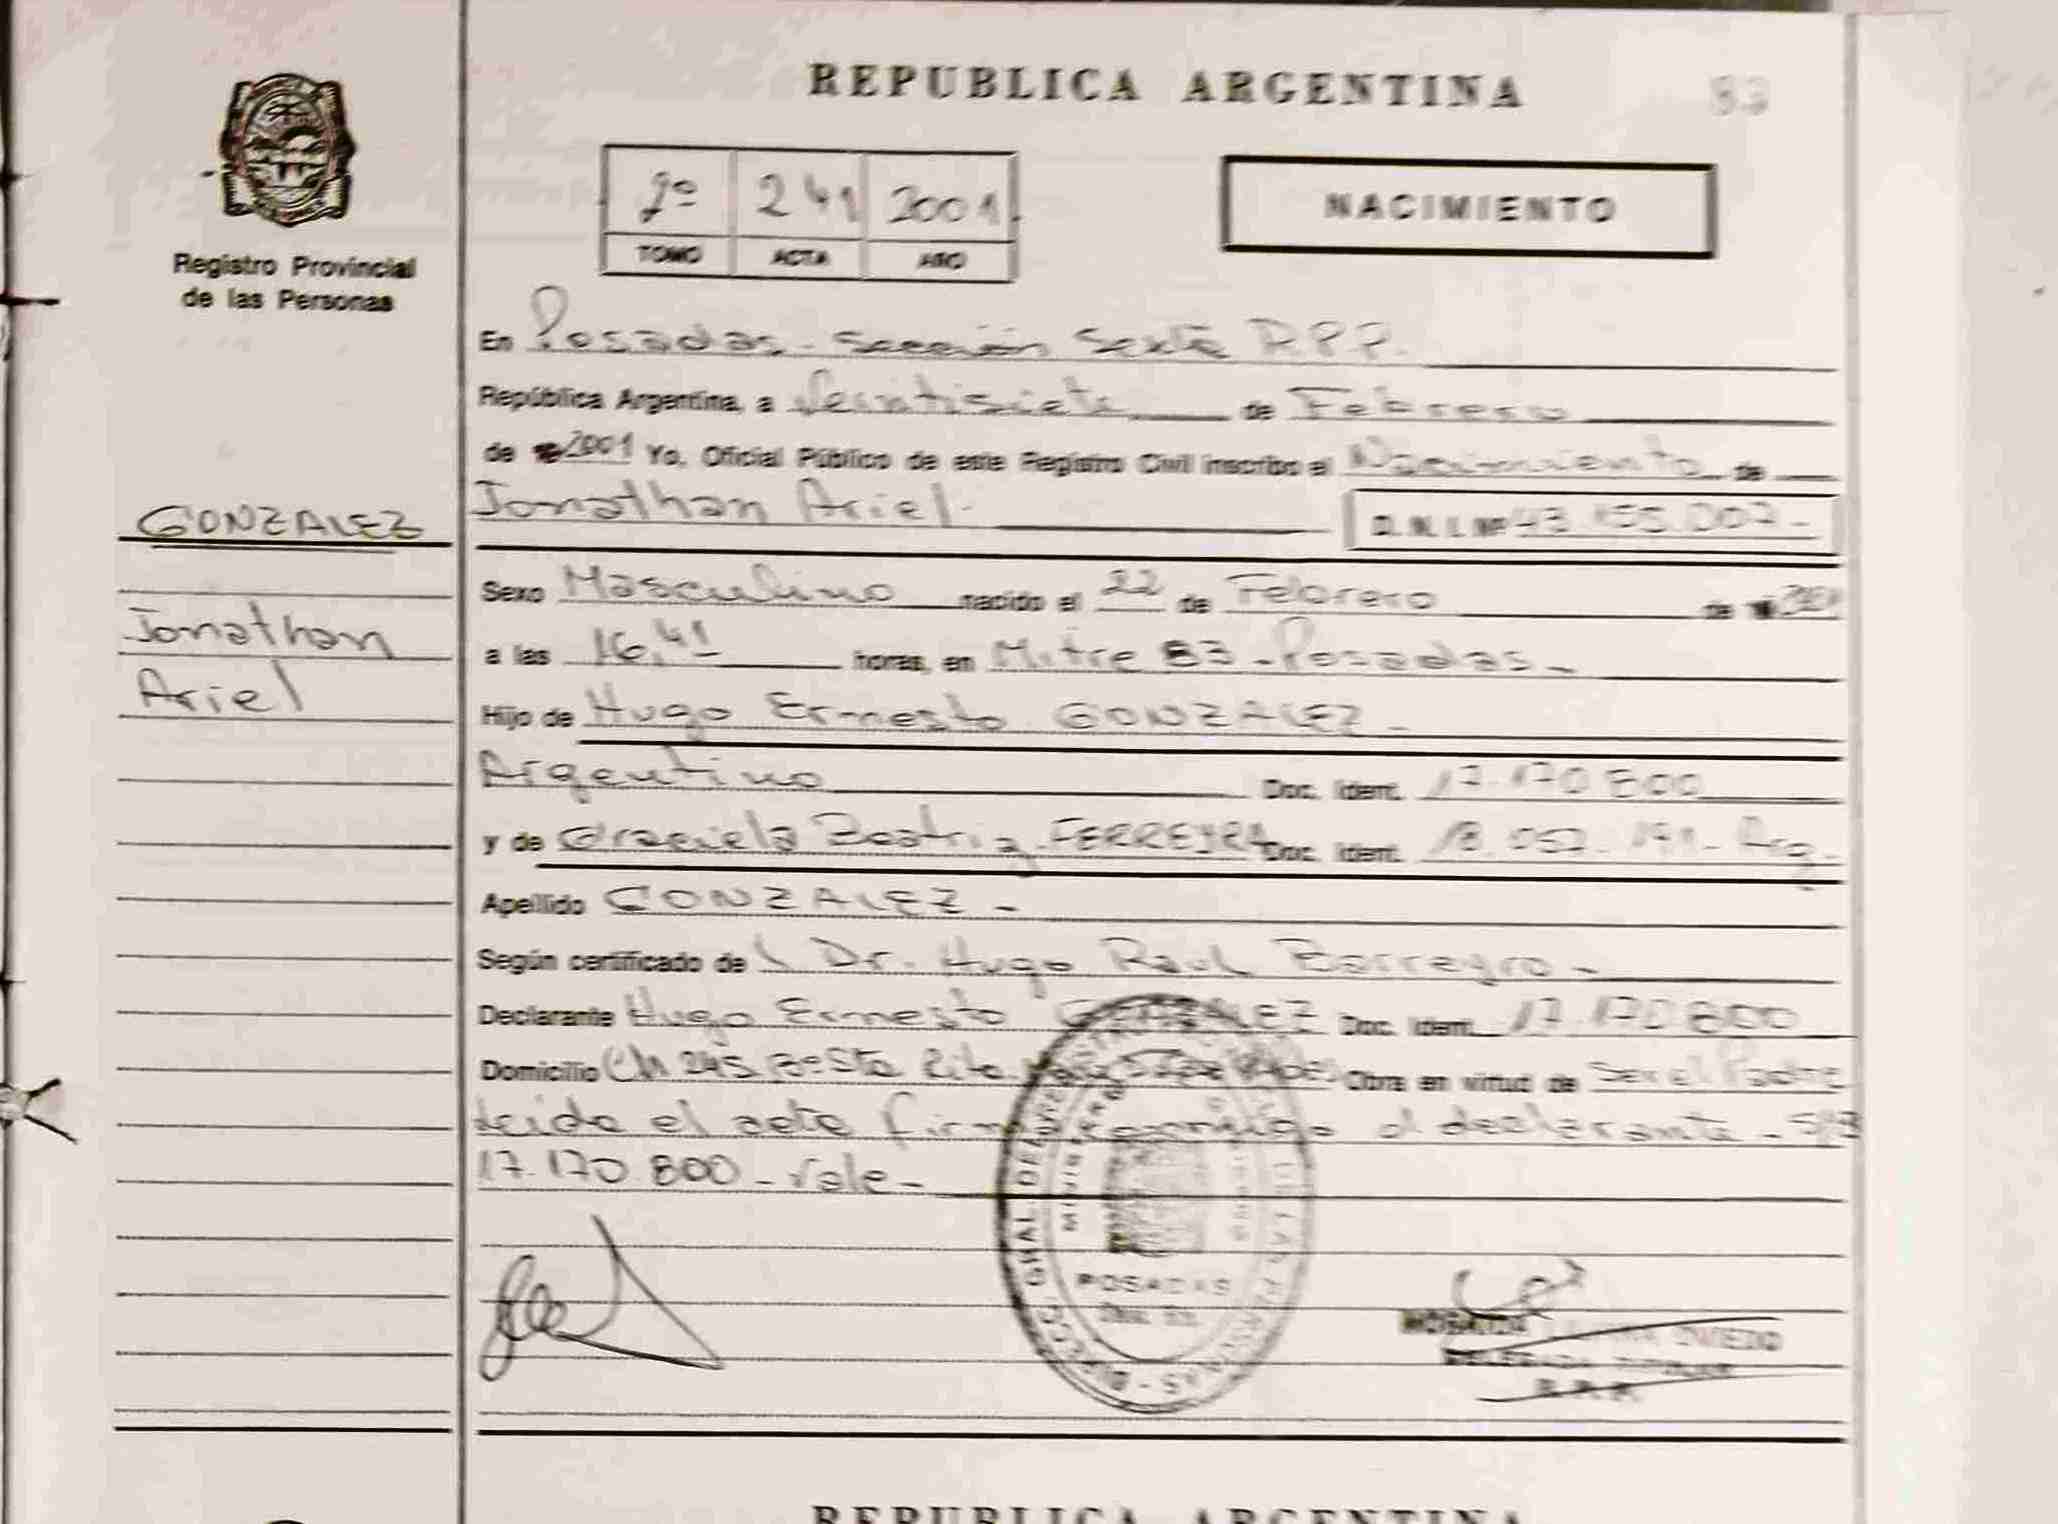 REPUBLICA ARGENTINA
Registro Provincial
de las Personas
2º 241 2001
TOMO ACTA AÑO
NACIMIENTO
En Posadas - Sección Sexta R.P.P.
República Argentina, a Veintisiete de Febrero
de 2001 Yo, Oficial Público de este Registro Civil inscribo el Nacimiento de
GONZALEZ
Jonathan Ariel.
D.N.I. Nº 43.155.007 -
Sexo Masculino nacido el 22 de Febrero de 2001
Jonathan
Ariel
a las 16,41 horas, en Mitre 83 - Posadas -
Hijo de Hugo Ernesto GONZALEZ -
Argentino Doc. Ident. 17.170.800
y de Graciela Beatriz FERREYRA Doc. Ident. 18.057.191 - Arg.
Apellido GONZALEZ -
Según certificado de Dr. Hugo Raul Borreyro -
Declarante Hugo Ernesto GONZALEZ Doc. Ident. 17.170.800
Domicilio Ch 245 Bº Sta Rita Obra en virtud de Ser el Padre
Leida el acta firma el declarante - S/R
17.170.800 - Vale -
DIRECC. GRAL. DEL REGISTRO DE LAS PERSONAS
MINISTERIO
POSADAS
OVIEDO
DELEGADA TITULAR
R.P.P.
REPUBLICA ARGENTINA